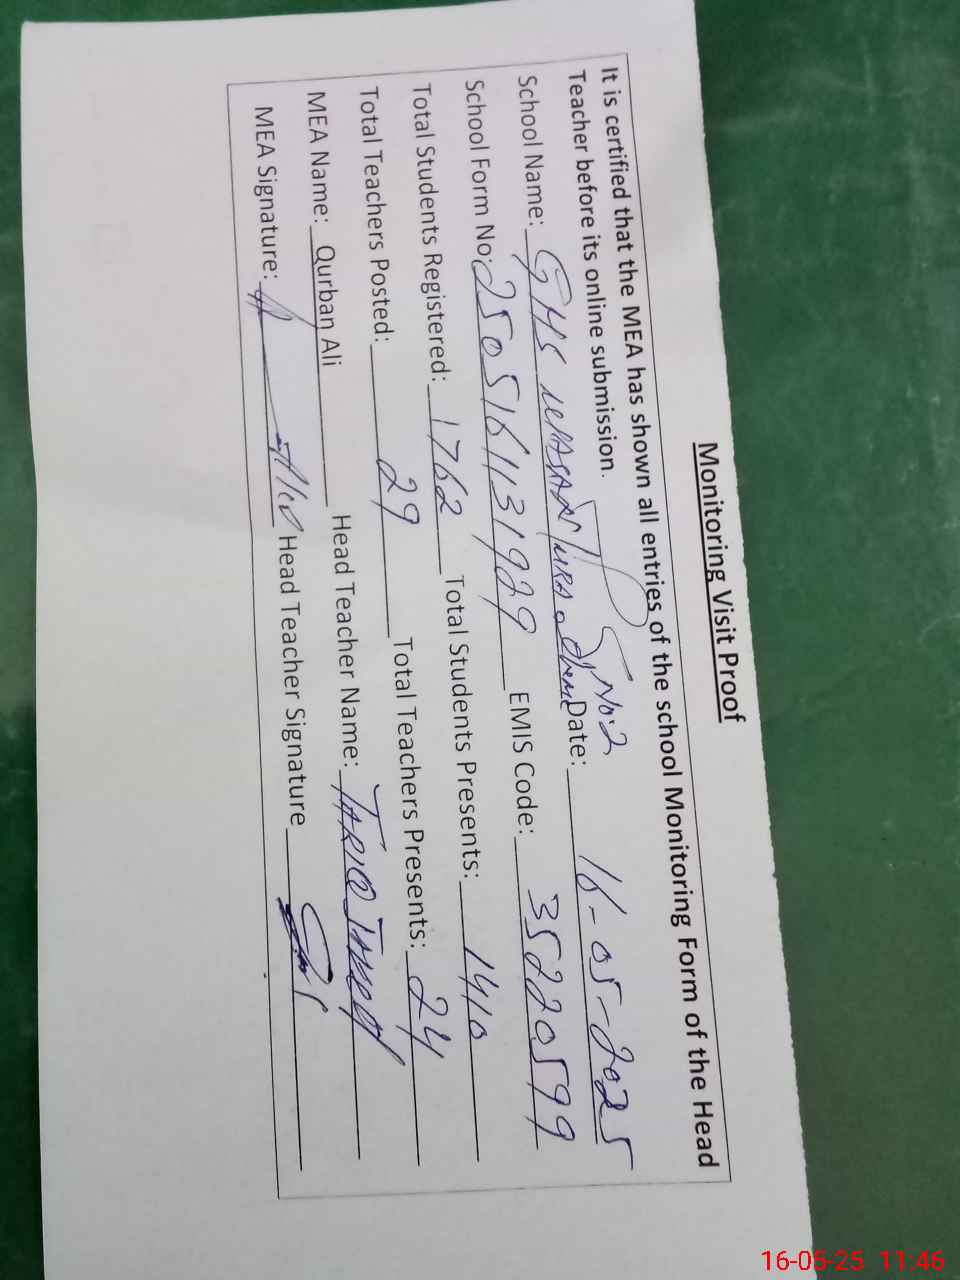 Monitoring Visit Proof
It is certified that the MEA has shown all entries of the school Monitoring Form of the Head
Teacher before its online submission.
School Name: GHS No:2 Date: 16-05-2025
School Form No: 2505161131929 EMIS Code: 35220599
Total Students Registered: 1762 Total Students Presents: 1410
Total Teachers Posted: 29 Total Teachers Presents: 24
MEA Name: Qurban Ali Head Teacher Name: TARIQ
MEA Signature: Head Teacher Signature
16-05-25 11:46